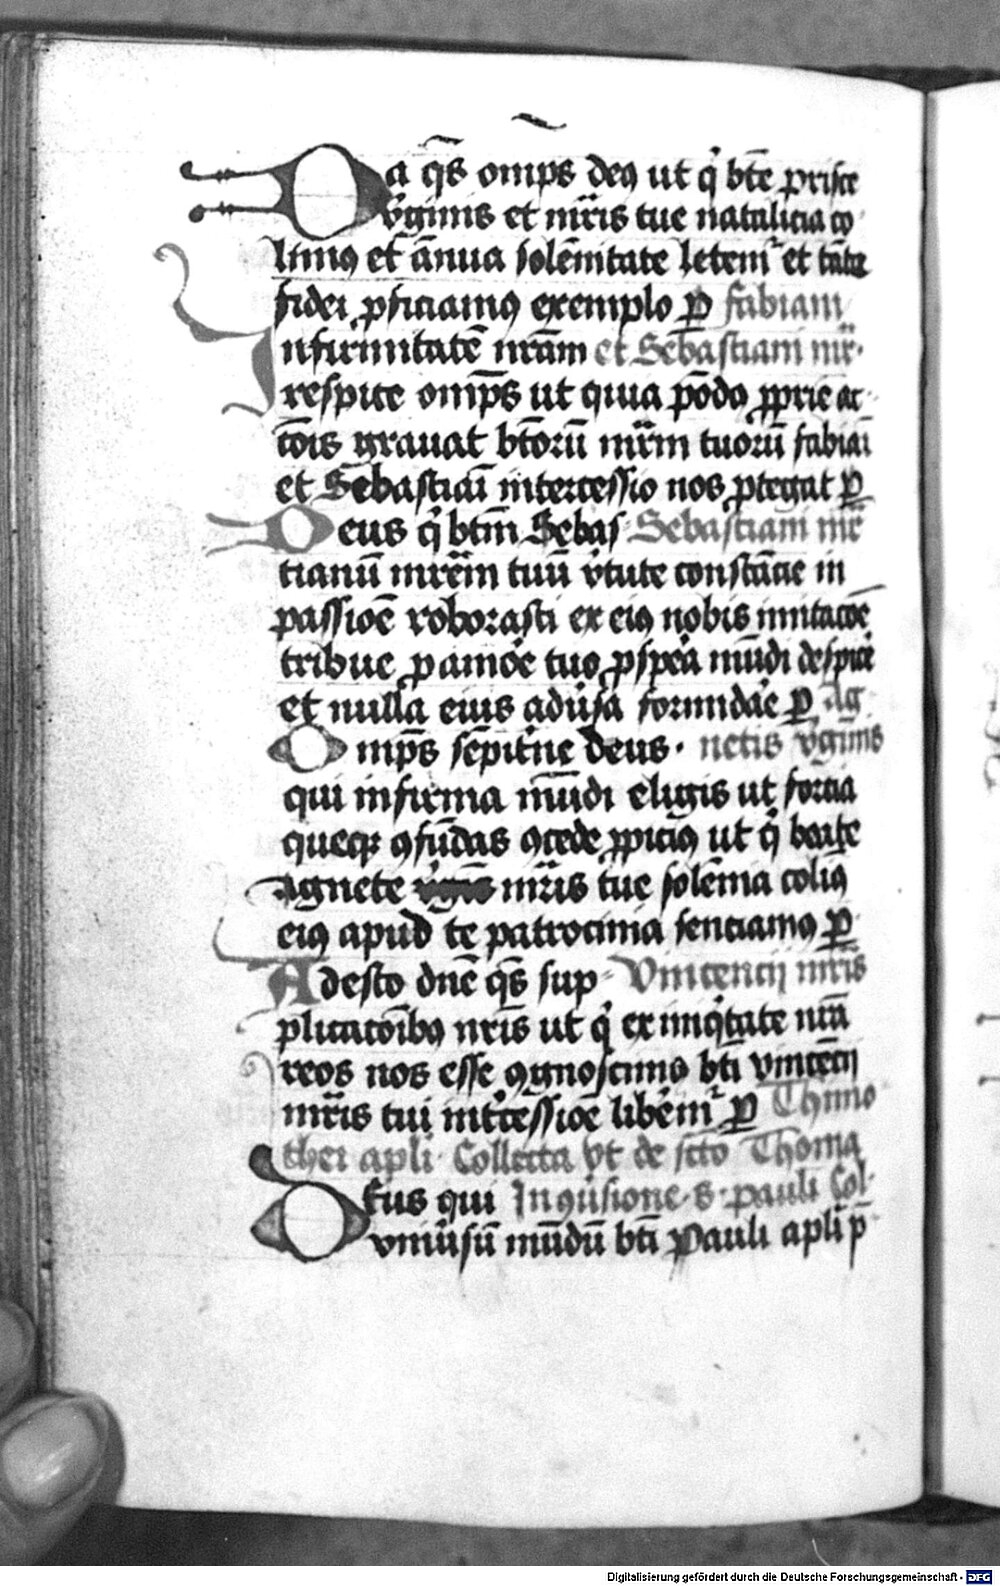 Da q̄s omp̄s deꝰ ut q̇ bt̄e prisce
v̇ginis et mr̄is tue natalicia co
limꝰ et ān̄ua solēnitate letemᷣ et tāta
fidei ꝓficiamꝰ exemplo ꝑ Fabiani
Infirmitatē nrām et Sebastiani mr̄.
respice omp̄s ut quia pōdꝰ ꝓprie ac
tōis grauat bt̄orū mr̄m tuorū fabiāi
et Sebastiāi intercessio nos ꝓtegat ꝑ
Deus q̇ btm̄ Sebas Sebastiani mr̄
tianū mr̄em tuū v̇tute constācie in
passiōe roborasti ex eiꝰ nobis imitacōe
tribue ꝓ amōe tuo ꝓspe̍a mūdi despice̍
et nulla eius adu̍sa formidae̍ ꝑ Ag
Omp̄s sēpit̍ne deus. netis v̍gīnis
qui infirma mūdi eligis ut forcia
queqꝫ ꝯfūdas ꝯcede ꝓpiciꝰ ut q̇ beate
agnete mr̄is tue solēnia colimꝰ
eiꝰ apud te patrocinia senciamꝰ ꝑ
Adesto dn̄e q̄s sup Vincencij mr̄is
plicacōibꝰ nr̄is ut q̇ ex iniq̇tate nr̄a
reos nos esse ꝯgnoscimꝰ bt̄i vincēcij
mr̄is tui int̍cessiōe libe̍mᷣ ꝑ Thimo
thei apli. Collecta vt de scto Thoma
Deus qui In ꝯu̍sione s. pauli Col.
vniu̍sū mūdū bt̄i Pauli apli p̄
Digitalisierung gefördert durch die Deutsche Forschungsgemeinschaft - DFG